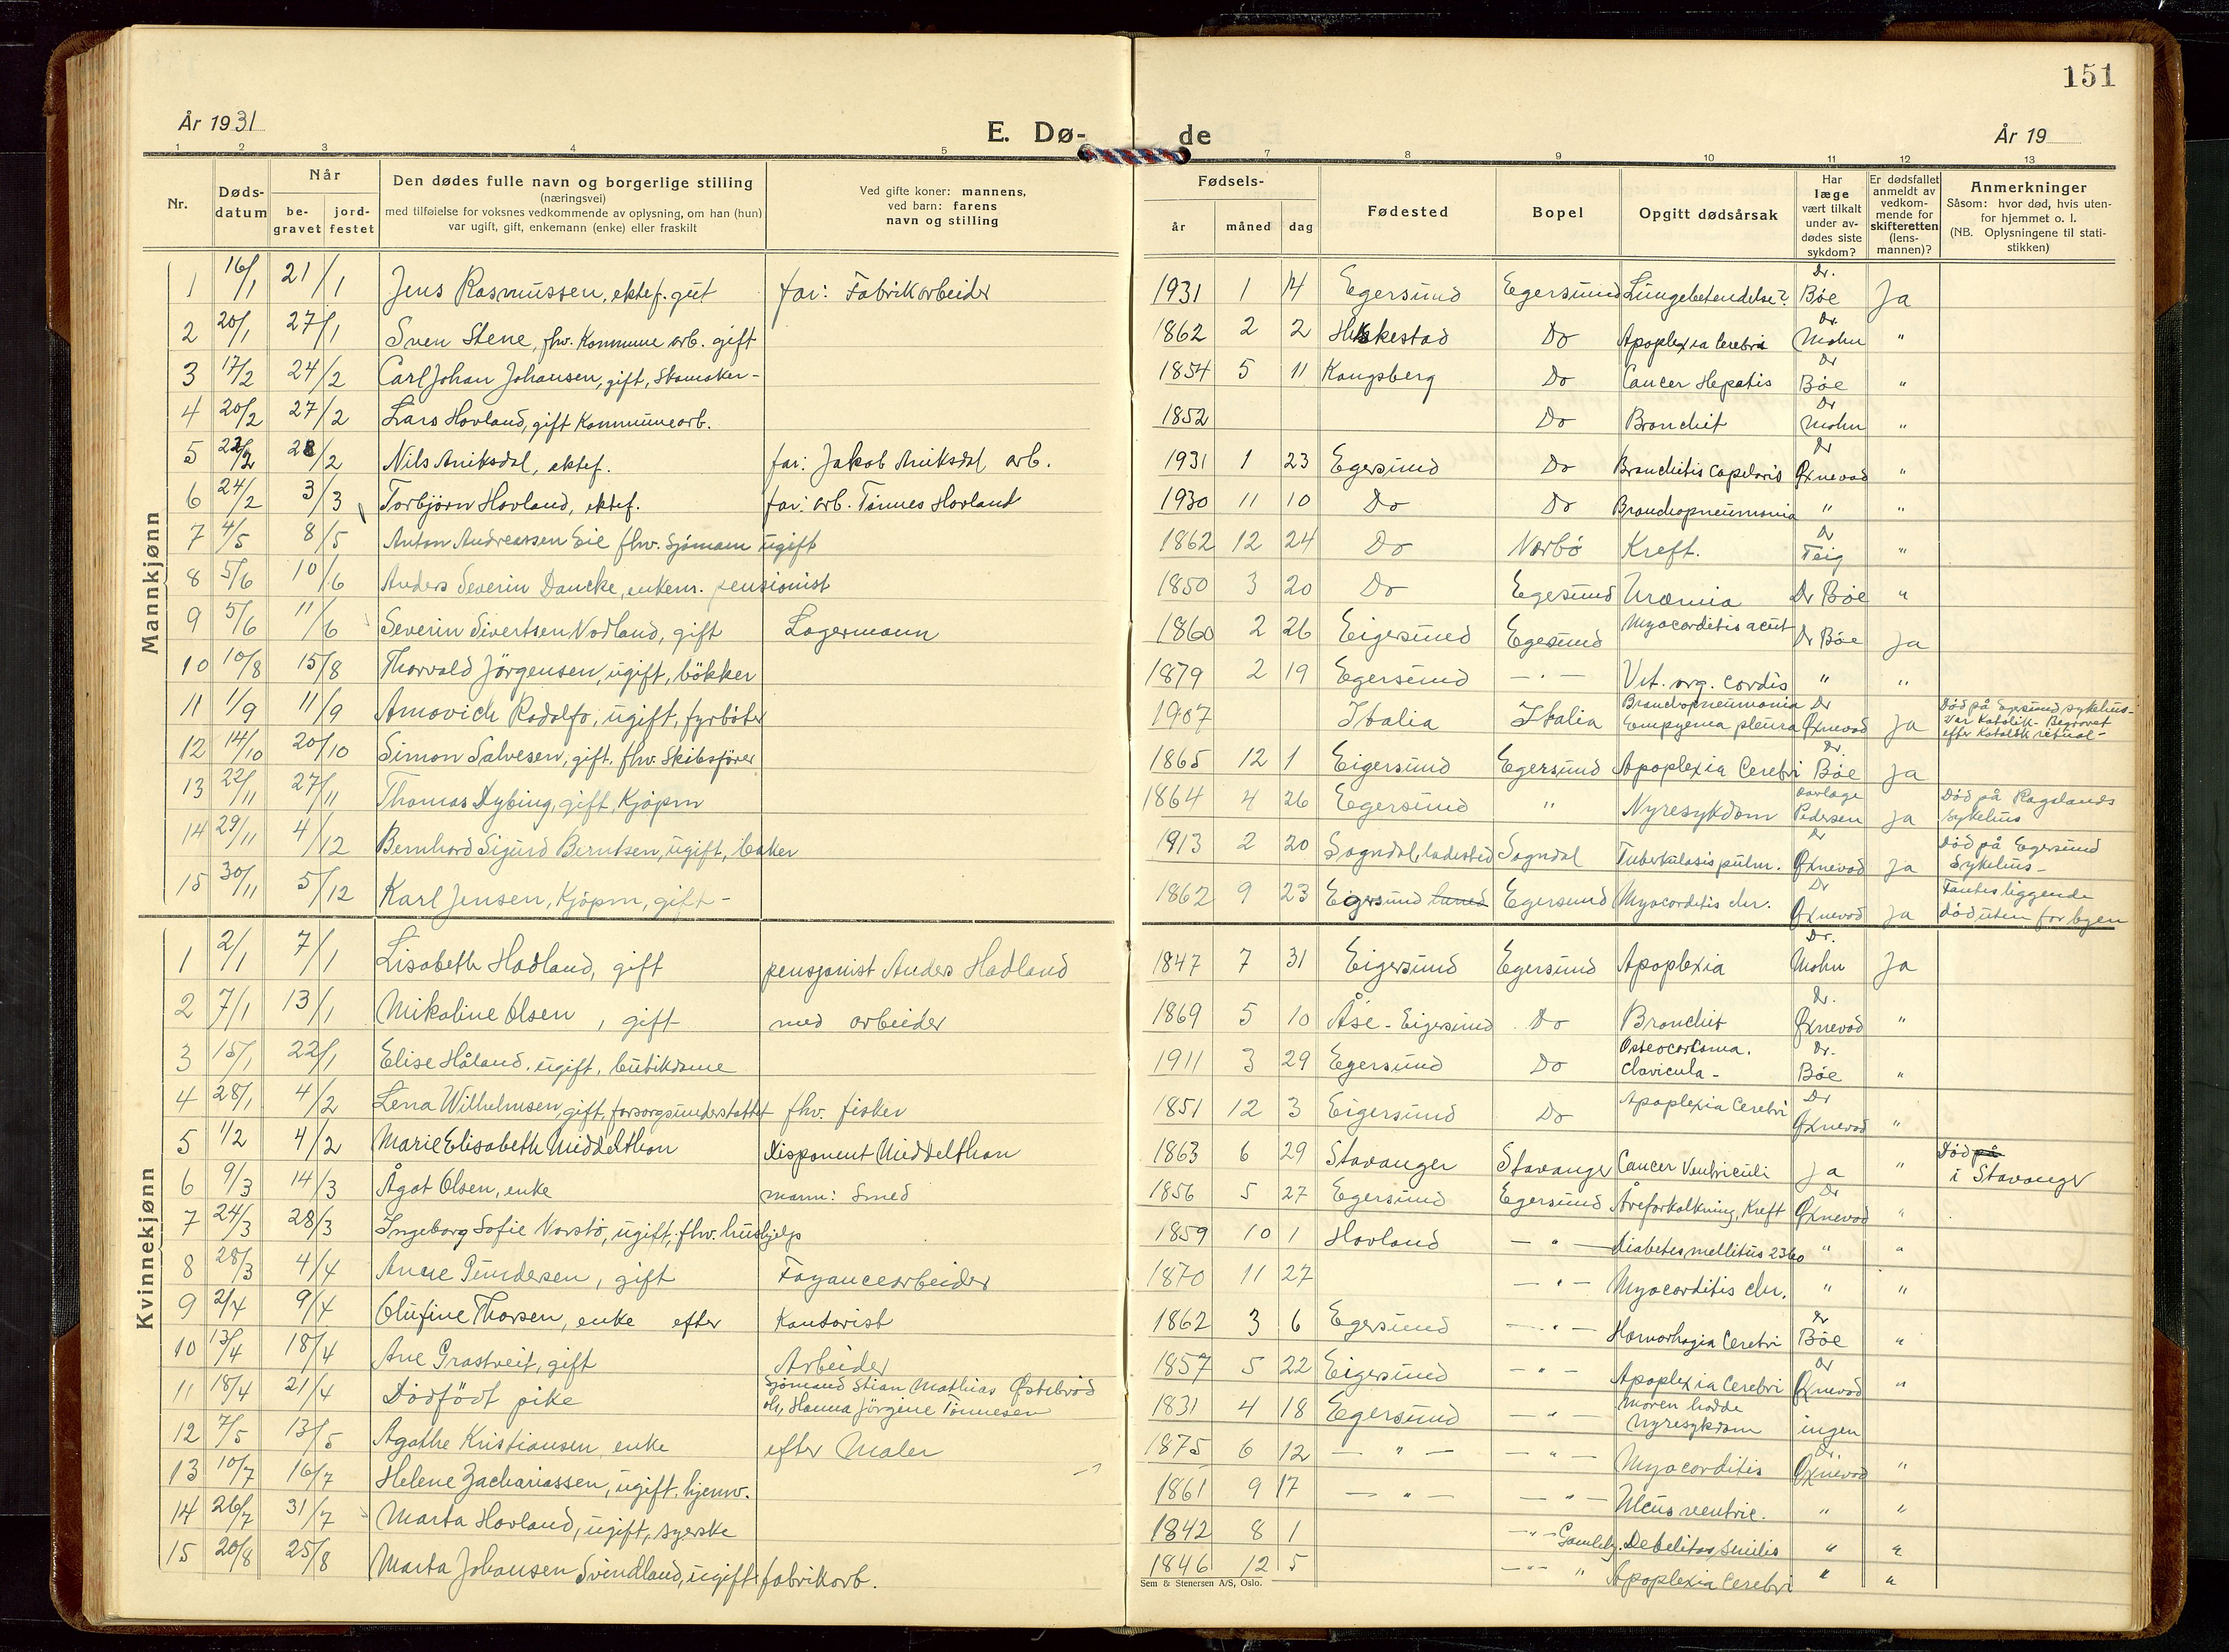 151
År 1931 E. Dø- de År 19
1 2 3 4 5 7 8 9 10 11 12 13
Nr. Døds-datum Når be-gravet jord-festet Den dødes fulle navn og borgerlige stilling (næringsvei) med tilføielse for voksnes vedkommende av oplysning, om han (hun) var ugift, gift, enkemann (enke) eller fraskilt Ved gifte koner: mannens, ved barn: farens navn og stilling Fødsels- år måned dag Fødested Bopel Opgitt dødsårsak Har læge vært tilkalt under av-dødes siste sykdom? Er dødsfallet anmeldt av vedkom-mende for skifteretten (lens-mannen)? Anmerkninger Såsom: hvor død, hvis uten-for hjemmet o. l. (NB. Oplysningene til stati-stikken)
Mannkjønn
1 16/1 21/1 Jens Rasmussen, ektef. gut far: Fabrikarbeider 1931 1 14 Egersund Egersund Lungebetendelse? Dr. Bøe Ja
2 20/1 27/1 Sven Stene, fhv. Kommune arb. gift 1862 2 2 Heskestad Do Apoplexia Cerebri Dr. Mohn "
3 17/2 24/2 Carl Johan Johansen, gift, Skomaker- 1854 5 11 Kongsberg Do Cancer Hepatis Dr Bøe "
4 20/2 27/2 Lars Hovland, gift Kommunearb. 1852 Do Bronchit Dr Mohn "
5 22/2 28/2 Nils Aniksdal, ektef. far: Jakob Aniksdal arb. 1931 1 23 Egersund Do Bronchitis Capilaris Dr Øxnevad "
6 24/2 3/3 Torbjørn Hovland, ektef. far: arb. Tønnes Hovland 1930 11 10 Do Do Bronchopneumonia " "
7 4/5 8/5 Anton Andreassen Eie fhv. Sjømann ugift 1862 12 24 Do Nærbø Kreft. Dr Teig "
8 5/6 10/6 Anders Severin Dancke, enkem. pensionist 1850 3 20 Do Egersund Uræmia Dr Bøe "
9 5/6 11/6 Severin Sivertsen Nodland, gift Lagermann 1860 2 26 Eigersund Egesund Myocarditis acut Dr Bøe Ja
10 10/8 15/8 Thorvald Jörgensen, ugift, bökker 1879 2 19 Egersund - " - Vit. org. cordis " "
11 1/9 11/9 Amovich Rodolfo, ugift, fyrböter 1907 Italia Italia Bronchopneumonia Empyema pleura Dr Øxnevad Ja Död på Egersund sykehus- Var Katolik- Begravet efter Katolsk ritual-
12 14/10 20/10 Simon Salvesen, gift, fhv. Skibsförer 1865 12 1 Eigersund Egersund Apoplexia Cerebri Dr. Bøe Ja
13 22/11 27/11 Thomas Dybing, gift, Kjöpm 1864 4 26 Egersund " Nyresykdom Overlæge Pedersen Ja Död på Rogalands Sykehus
14 29/11 4/12 Bernhard Sigurd Berntsen, ugift, baker 1913 2 20 Sogndal, ladested Sogndal Tuberkulosis pulm. Dr Øxnevad Ja Död på Egersund Sykehus-
15 30/11 5/12 Karl Jensen, Kjöpm, gift- 1862 9 23 Egersund Egersund Myocarditis chr. Dr Øxnevad Ja Fantes liggende död uten for byen
Kvinnekjønn
1 2/1 7/1 Lisabeth Hadland, gift pensjonist Anders Hadland 1847 7 31 Eigersund Egersund Apoplexia Dr. Mohn Ja
2 7/1 13/1 Mikaline Olsen, gift med arbeider 1869 5 10 Åse-Eigersund Do Bronchit Dr. Øxnevad "
3 15/1 22/1 Elise Håland, ugift, butikdame 1911 3 29 Egersund Do Osteocarkoma. Clavicula- Dr. Bøe "
4 28/1 4/2 Lena Wilhelmsen, gift, forsorgsunderstøttet fhv. fisker 1851 12 3 Eigersund Do Apoplexia Cerebri Dr Øxnevad "
5 1/2 4/2 Marie Elisabeth Middelthon Disponent Middelthon 1863 6 29 Stavanger Stavanger Cancer Ventriculi Ja " Död på i Stavanger
6 9/3 14/3 Ågot Olsen, enke mann: Smed 1856 5 27 Egersund Egersund Åreforkalkning, Kreft Dr Øxnevad "
7 24/3 28/3 Ingeborg Sofie Vorstö, ugift, fhv. hushjelp 1859 10 1 Hovland - " - Diabetes mellitus " "
8 28/3 4/4 Anne Gundersen, gift Fayancearbeider 1870 11 27 - " - Myocarditis chr. " "
9 2/4 9/4 Olufine Thorsen, enke efter Kontorist 1862 3 6 Egersund - " - Hæmorhagia Cerebri Dr Bøe "
10 13/4 18/4 Ane Grastveit, gift Arbeider 1857 5 22 Eigersund - " - Apoplexia Cerebri Dr Øxnevad "
11 18/4 21/4 Dödfödt pike Sjömand Stian Mathias Östebröd oh, Hanna Jörgine Tönnesen 1831 4 18 Egersund - " - Moren hadde Nyresykdom ingen
12 7/5 13/5 Agathe Kristiansen, enke efter Maler 1875 6 12 - " - - " - Myocarditis Dr Øxnevad "
13 10/7 16/7 Helene Zachariassen, ugift, hjemv. 1861 9 17 - " - - " - Ulcus ventric. " "
14 26/7 31/7 Marta Hovland, ugift, syerske 1842 8 1 - " - Gamleh. Debilitas senilis " "
15 20/8 25/8 Marta Johansen Svindland, ugift fabrikarb. 1846 12 5 - " - " Apoplexia Cerebri " "
Sem & Stenersen A/S, Oslo.